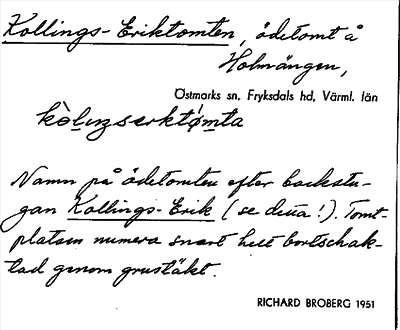 Kollings-Eriktomten, ödetomt å
Holmängen,
Östmarks sn, Fryksdals hd, Värml. län
Namn på ödetomten efter backstu-
gan Kollings-Erik (se detta!). Tomt-
platsen numera snart helt bortschak-
tad genom grustäkt.
RICHARD BROBERG 1951